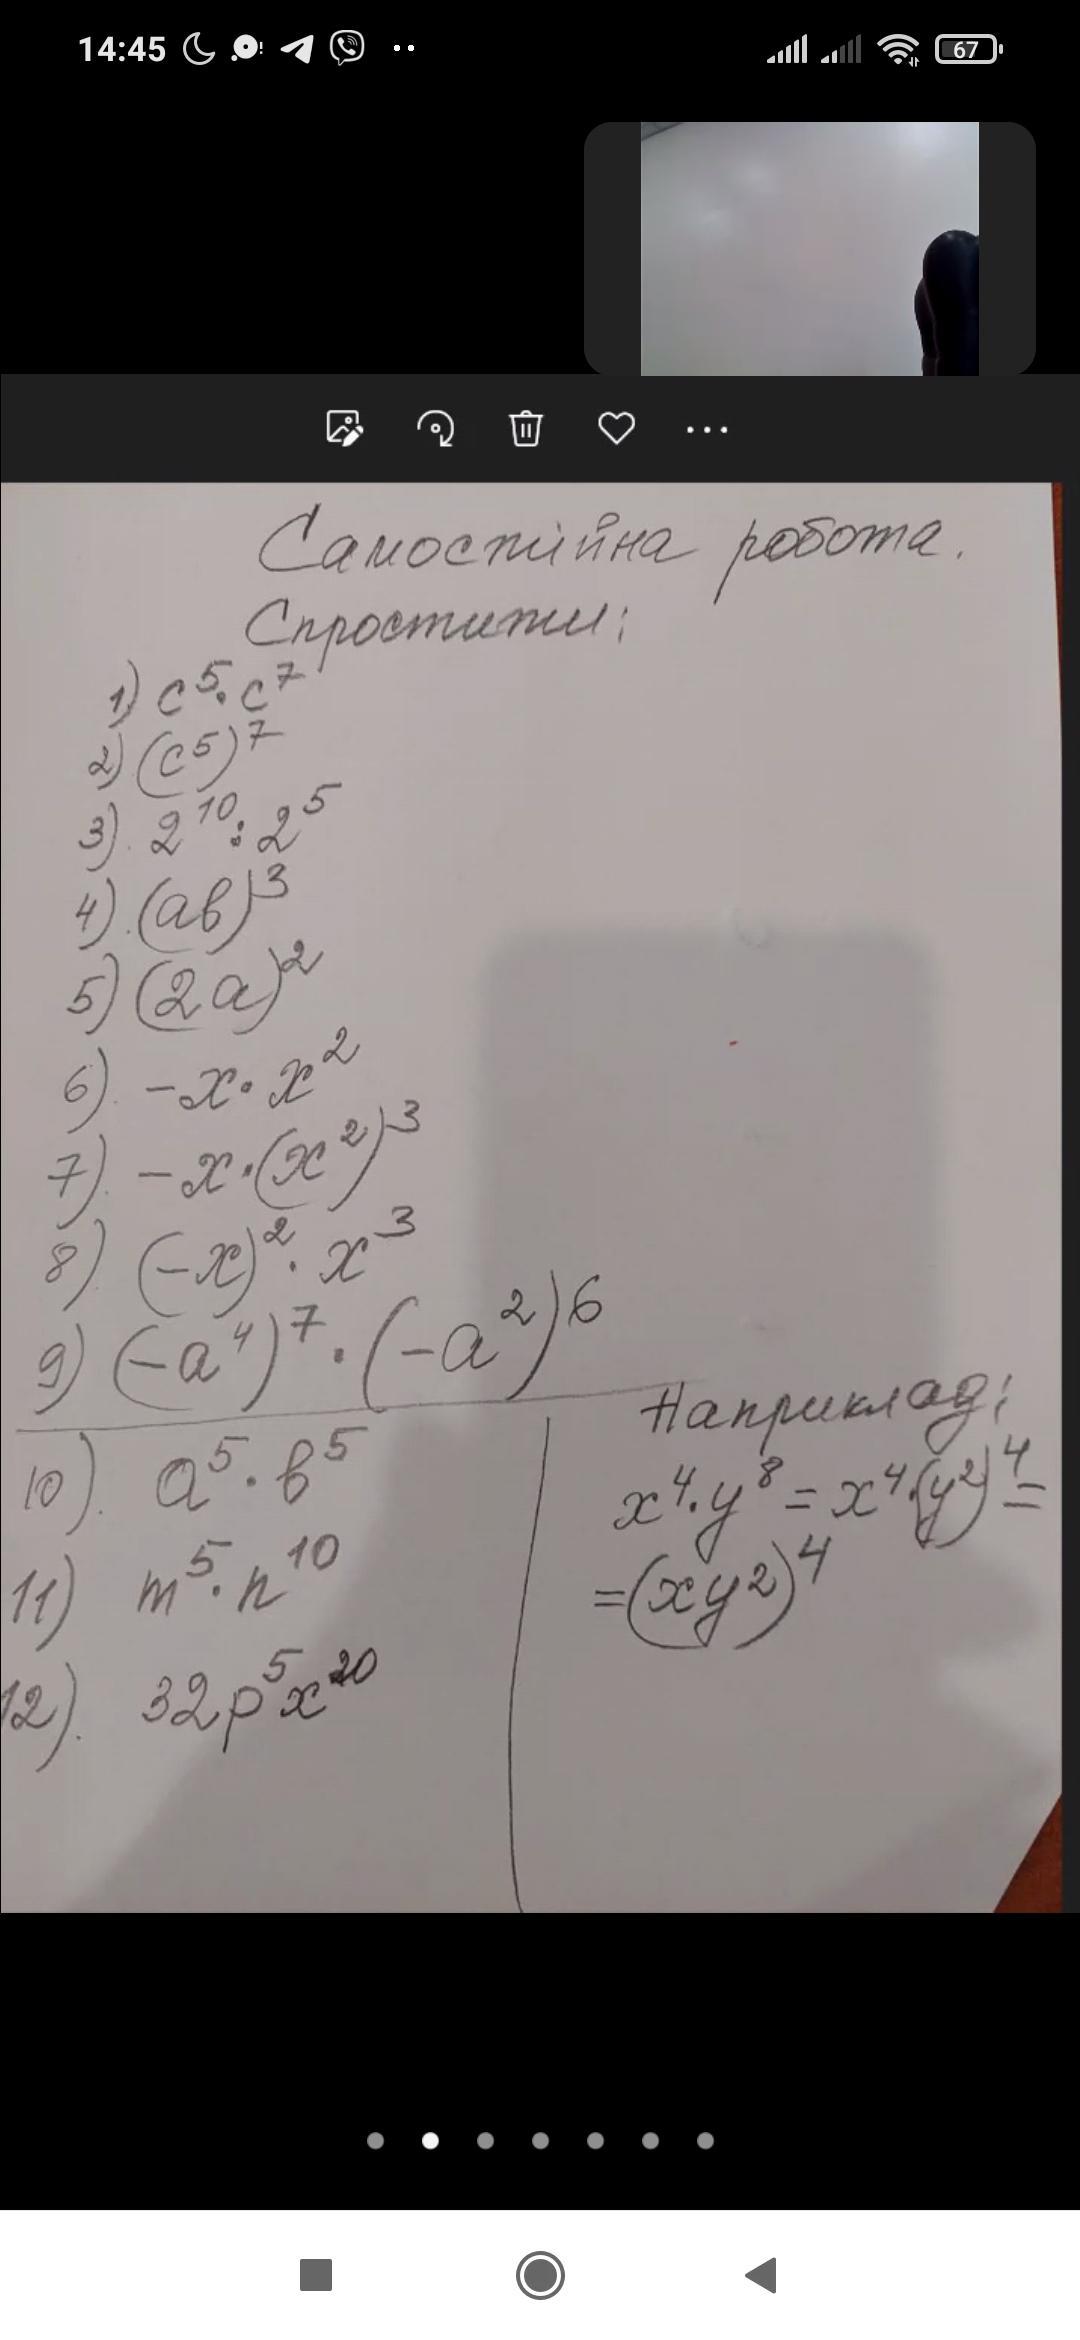 14:45
67
Самостійна робота.
Спростити:
1) c⁵·c⁷
2) (c⁵)⁷
3). 2¹⁰:2⁵
4). (ab)³
5) (2a)²
6). -x·x²
7). -x·(x²)³
8) (-x)²·x³
9) (-a⁴)⁷·(-a²)⁶
10). a⁵·b⁵
11) m⁵·n¹⁰
12). 32p⁵x²⁰
Наприклад:
x⁴·y⁸=x⁴·(y²)⁴=
=(xy²)⁴